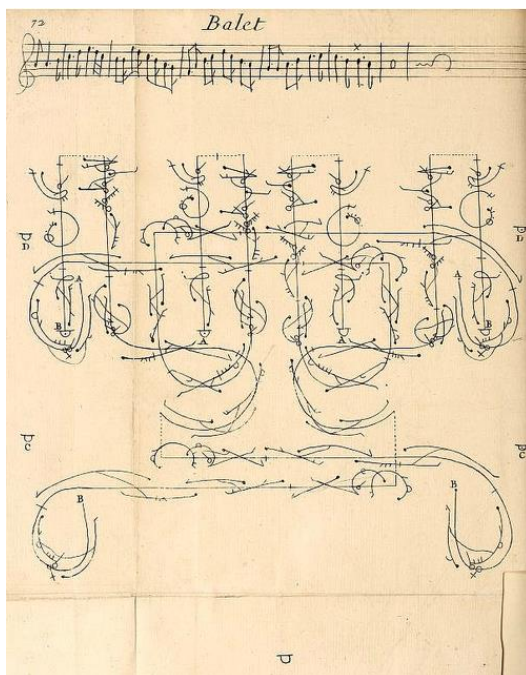 72
Balet
D D
A A
B A A B
C C
B B